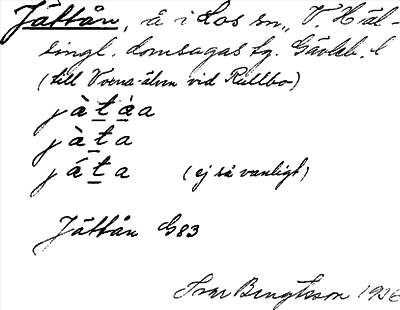 Jättån, å i Los sn., V. Häl-
singl. domsagas tg. Gävleb. l
(till Voxna-älven vid Rullbo)
jàt̠a̠a
jàt̠a
ját̠a (ej så vanligt)
Jättån G83
Ivar Bengtsson 1936